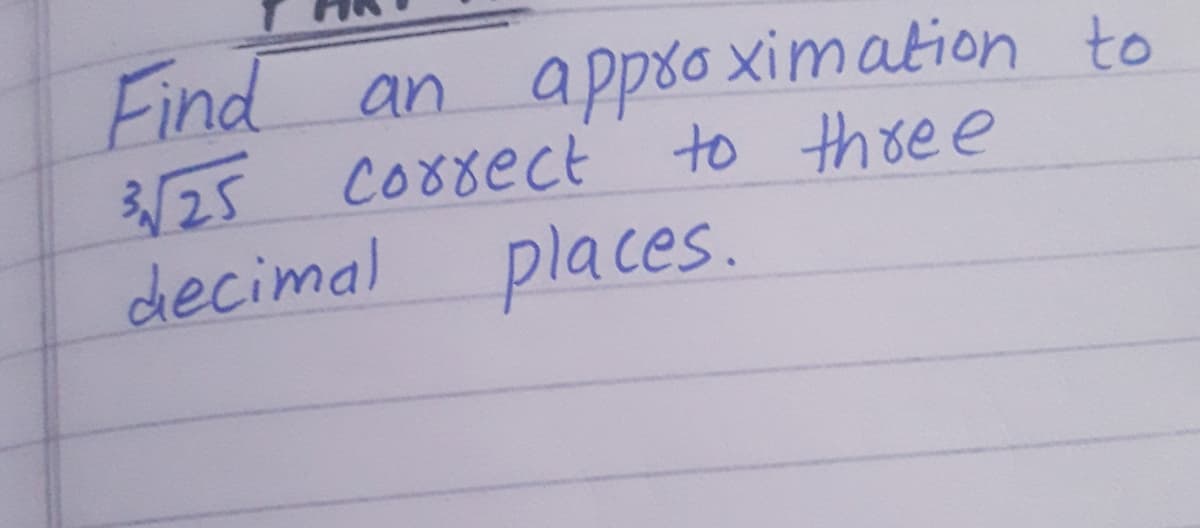 Find an approximation to
∛25 correct to three
decimal places.